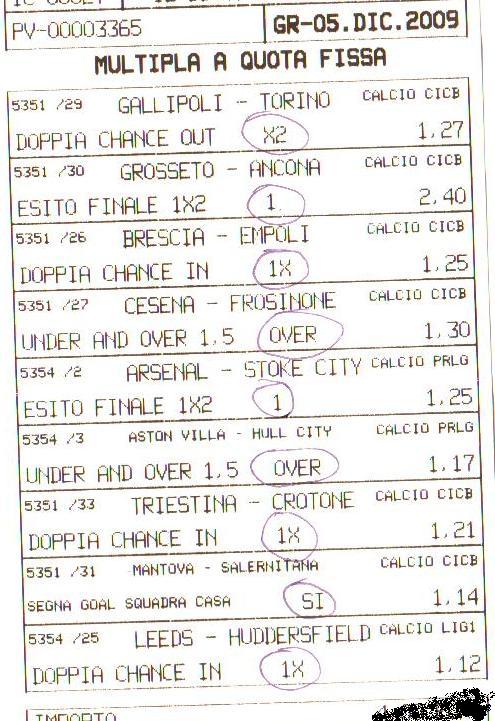 PV-00003365 GR-05.DIC.2009
MULTIPLA A QUOTA FISSA
5351 /29 GALLIPOLI - TORINO CALCIO CICB
DOPPIA CHANCE OUT X2 1,27
5351 /30 GROSSETO - ANCONA CALCIO CICB
ESITO FINALE 1X2 1 2,40
5351 /26 BRESCIA - EMPOLI CALCIO CICB
DOPPIA CHANCE IN 1X 1,25
5351 /27 CESENA - FROSINONE CALCIO CICB
UNDER AND OVER 1,5 OVER 1,30
5354 /2 ARSENAL - STOKE CITY CALCIO PRLG
ESITO FINALE 1X2 1 1,25
5354 /3 ASTON VILLA - HULL CITY CALCIO PRLG
UNDER AND OVER 1,5 OVER 1,17
5351 /33 TRIESTINA - CROTONE CALCIO CICB
DOPPIA CHANCE IN 1X 1,21
5351 /31 MANTOVA - SALERNITANA CALCIO CICB
SEGNA GOAL SQUADRA CASA SI 1,14
5354 /25 LEEDS - HUDDERSFIELD CALCIO LIG1
DOPPIA CHANCE IN 1X 1,12
IMPORTO